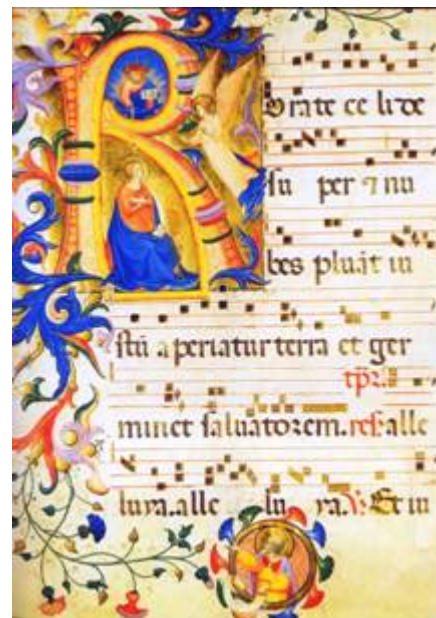 Rorate celi de
su per ⁊ nu
bes pluāt iu
stū aperiatur terra et ger
tp̄r.
minet saluatorem. res. alle
luya. alle lu ya. V. Et iu